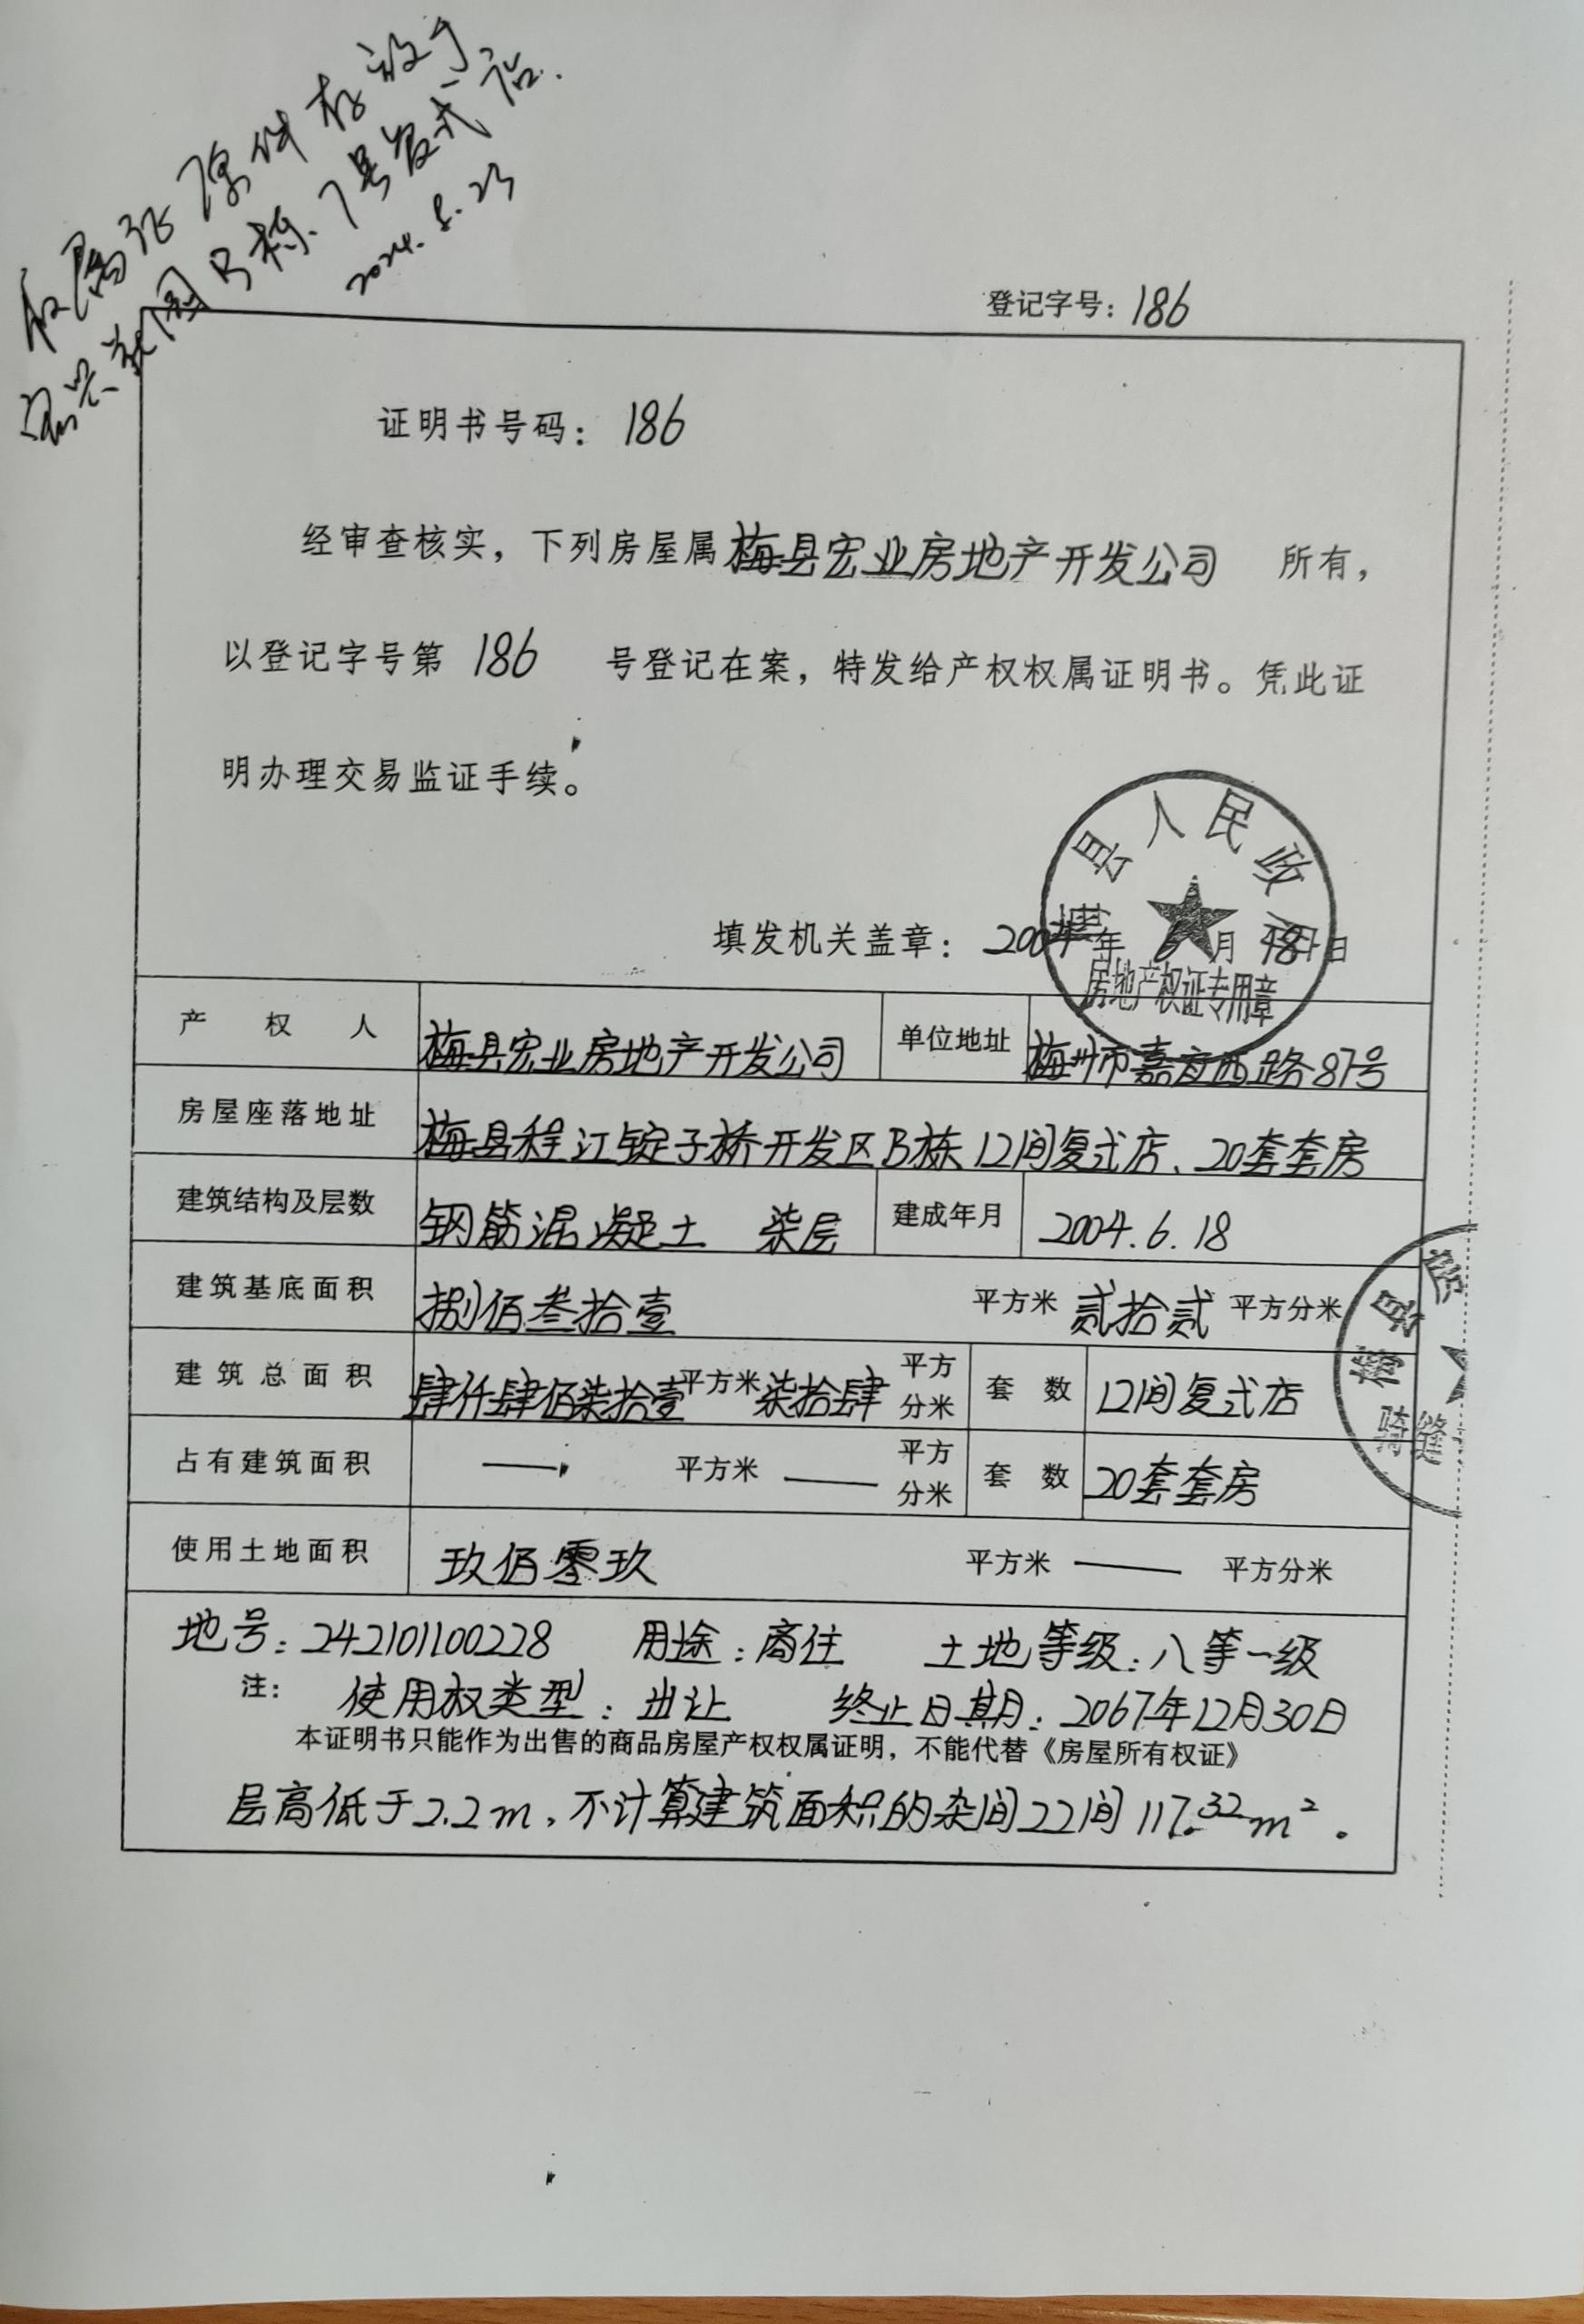 权属证原件存放于
宏兴新园B栋7号复式店.
2024.8.23
登记字号：186
证明书号码：186
经审查核实，下列房屋属梅县宏业房地产开发公司 所有，
以登记字号第 186 号登记在案，特发给产权权属证明书。凭此证
明办理交易监证手续。
梅县人民政府
房地产权证专用章
填发机关盖章：2004年6月18日
产权人 梅县宏业房地产开发公司 单位地址 梅州市嘉应西路87号
房屋座落地址 梅县程江锭子桥开发区B栋12间复式店、20套套房
建筑结构及层数 钢筋混凝土 柒层 建成年月 2004.6.18
建筑基底面积 捌佰叁拾壹 平方米 贰拾贰 平方分米
建筑总面积 肆仟肆佰柒拾壹平方米柒拾肆平方分米 套数 12间复式店
占有建筑面积 — 平方米 — 平方分米 套数 20套套房
使用土地面积 玖佰零玖 平方米 — 平方分米
梅县房
骑缝
地号：242101100228 用途：商住 土地等级：八等一级
注： 使用权类型：出让 终止日期：2067年12月30日
本证明书只能作为出售的商品房屋产权权属证明，不能代替《房屋所有权证》
层高低于2.2m，不计算建筑面积的杂间22间117.32m²．